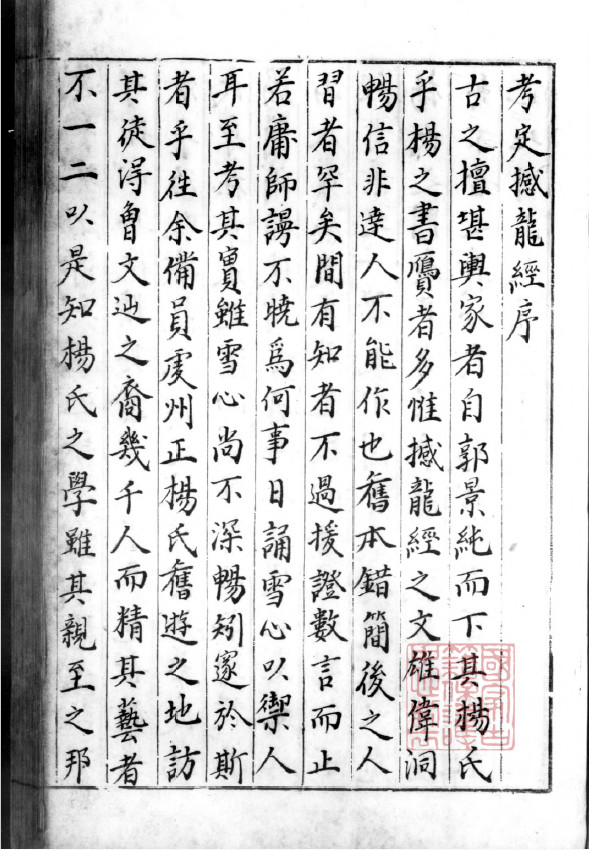 考定撼龍經序
古之擅堪輿家者自郭景純而下其楊氏
乎楊之書贗者多惟撼龍經之文雄偉洞
暢信非達人不能作也舊本錯簡後之人
習者罕矣間有知者不過援證數言而止
若庸師謗不曉爲何事日誦雪心以禦人
耳至考其實雖雪心尚不深暢矧邃於斯
者乎徃余備員虔州正楊氏舊遊之地訪
其徒得曾文辿之裔幾千人而精其藝者
不一二以是知楊氏之學雖其親至之邦